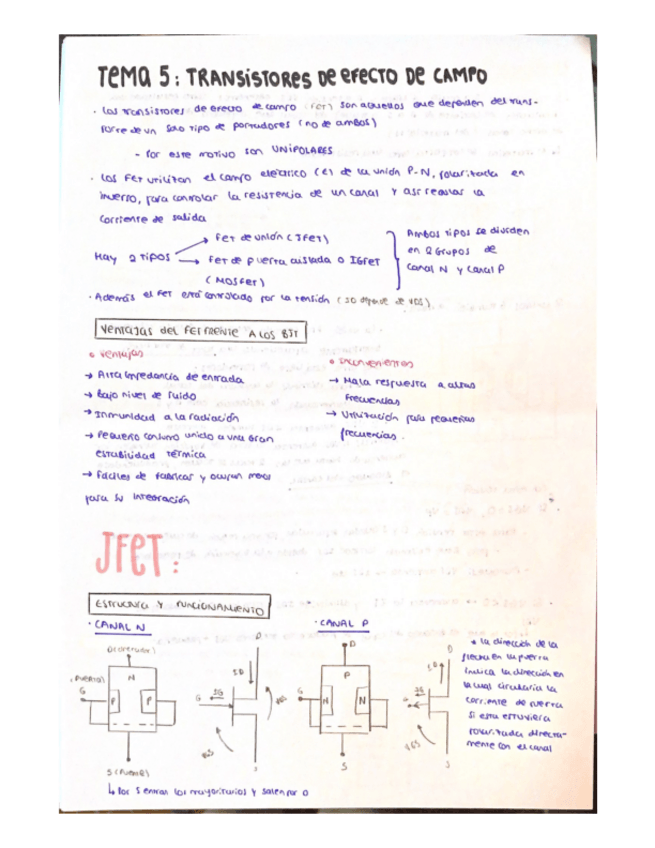 Tema 5: TRANSISTORES DE EFECTO DE CAMPO
· Los transistores de efecto de campo (FET) son aquellos que dependen del trans-
porte de un solo tipo de portadores (no de ambos)
- Por este motivo son UNIPOLARES
· Los FET utilizan el campo eléctrico (E) de la unión P-N, polarizada en
inverso, para controlar la resistencia de un canal y así regular la
corriente de salida
Hay 2 tipos
→ FET de unión (JFET)
→ FET de puerta aislada o IGFET
(MOSFET)
Ambos tipos se dividen
en 2 grupos de
canal N y canal P
· Además el FET está controlado por la tensión (ID depende de VGS)
Ventajas del FET FRENTE A LOS BJT
Ventajas
→ Alta impedancia de entrada
→ Bajo nivel de ruido
→ Inmunidad a la radiación
→ Pequeño conjunto unido a una gran
estabilidad térmica
→ Fáciles de fabricar y ocupan menos
para su integración
Inconvenientes
→ Mala respuesta a altas
frecuencias
→ Utilización para pequeñas
frecuencias.
JFET:
ESTRUCTURA Y FUNCIONAMIENTO
· CANAL N
· CANAL P
D (Drenador)
(Puerta)
G
N
P P
S (Fuente)
D
ID
G
IG
VGS
S
D
P
G
N N
S
D
ID
IG
G
VGS
S
* La dirección de la
flecha en la puerta
indica la dirección en
la cual circularía la
corriente de puerta
si esta estuviera
polarizada directa-
mente con el canal
↳ Por S entran los mayoritarios y salen por D